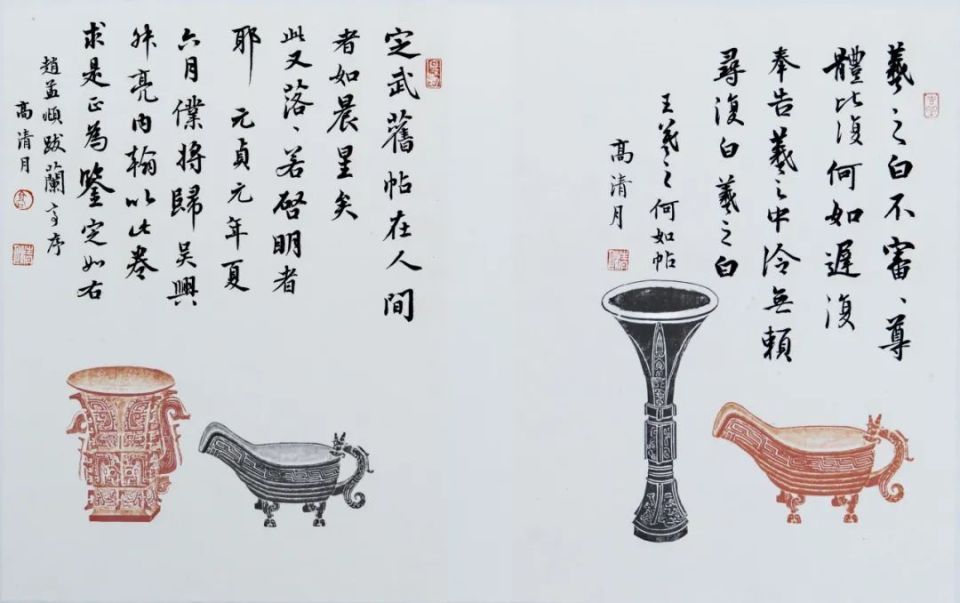 羲之白不審、尊
體比復何如遲復
奉告羲之中冷無賴
尋復白羲之白
王羲之何如帖
高清月
定武舊帖在人間
者如晨星矣
此又落、若啓明者
耶 元貞元年夏
六月僕將歸吳興
叔亮內翰以此卷
求是正為鑒定如右
趙孟頫跋蘭亭序
高清月